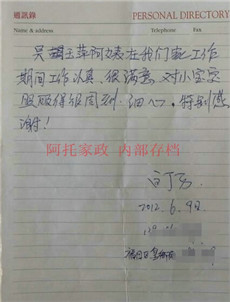 通訊錄 PERSONAL DIRECTORY
Name & Address Telephone Fax
吴玉萍阿姨在我们家工作
期间工作认真、很满意、对小宝宝
照顾得很周到、细心。特别感
谢!
阿托家政 内部存档
2012.6.9日